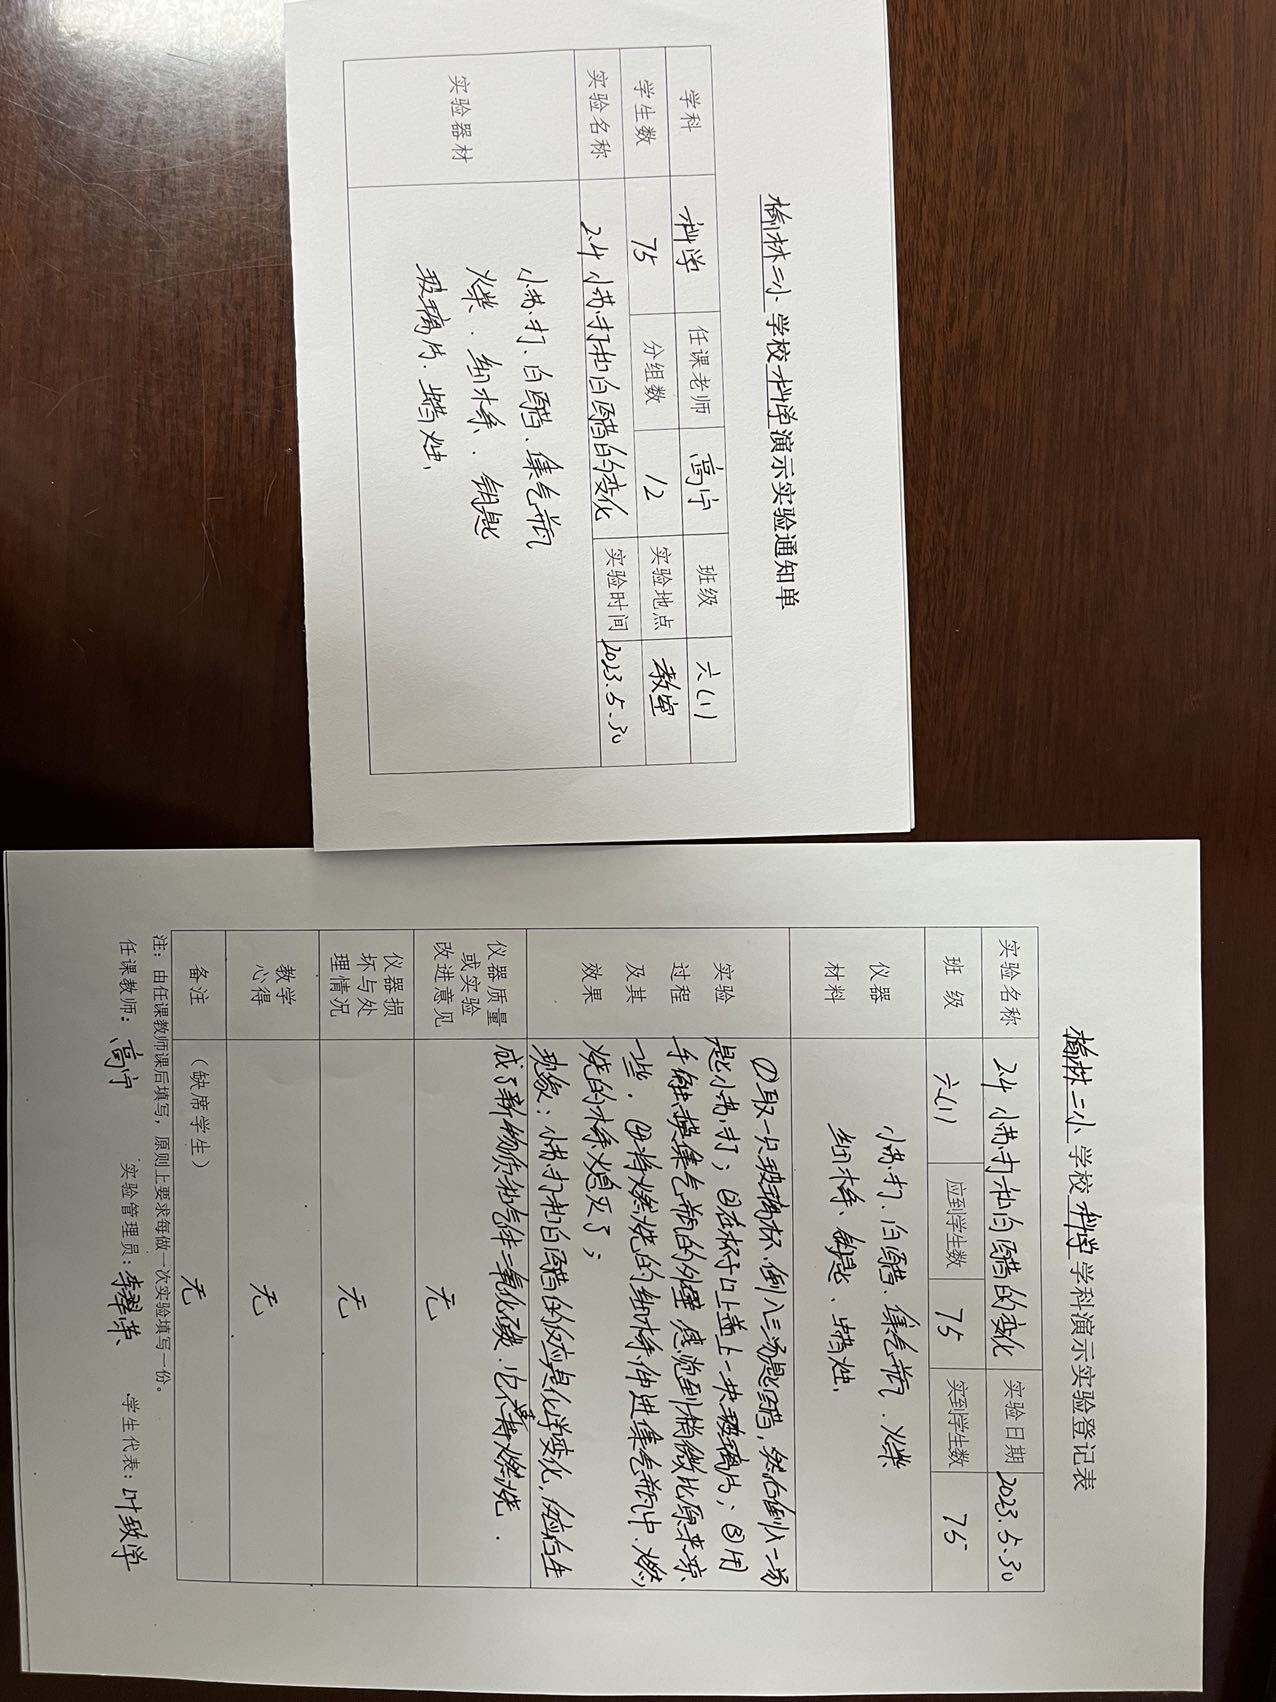 榆林二小学校科学演示实验通知单
学科 科学 任课老师 高宁 班级 六(1)
学生数 75 分组数 12 实验地点 教室
实验名称 2.4 小苏打和白醋的变化 实验时间 2023.5.30
实验器材
小苏打、白醋、集气瓶
火柴、细木条、钥匙
玻璃片、蜡烛、
榆林二小学校科学学科演示实验登记表
实验名称 2.4 小苏打和白醋的变化 实验日期 2023.5.30
班 级 六(1) 应到学生数 75 实到学生数 75
仪器
材料
小苏打、白醋、集气瓶、火柴
细木条、钥匙、蜡烛、
实验
过程
及其
效果
①取一只玻璃杯,倒入三汤匙醋,然后倒入一汤
匙小苏打;②在杯子口上盖上一块玻璃片;③用
手触摸集气瓶的外壁感觉到稍微比原来凉
一些,④将燃烧的细木条伸进集气瓶中,燃
烧的木条火熄灭了;
现象:小苏打和白醋的反应是化学变化,反应后生
成了新物质和气体二氧化碳.它不支持燃烧.
仪器质量
或实验
改进意见
无
仪器损
坏与处
理情况
无
教学
心得
无
备注 (缺席学生) 无
注:由任课教师课后填写,原则上要求每做一次实验填写一份。
任课教师:高宁 实验管理员:李翠荣 学生代表:叶致学